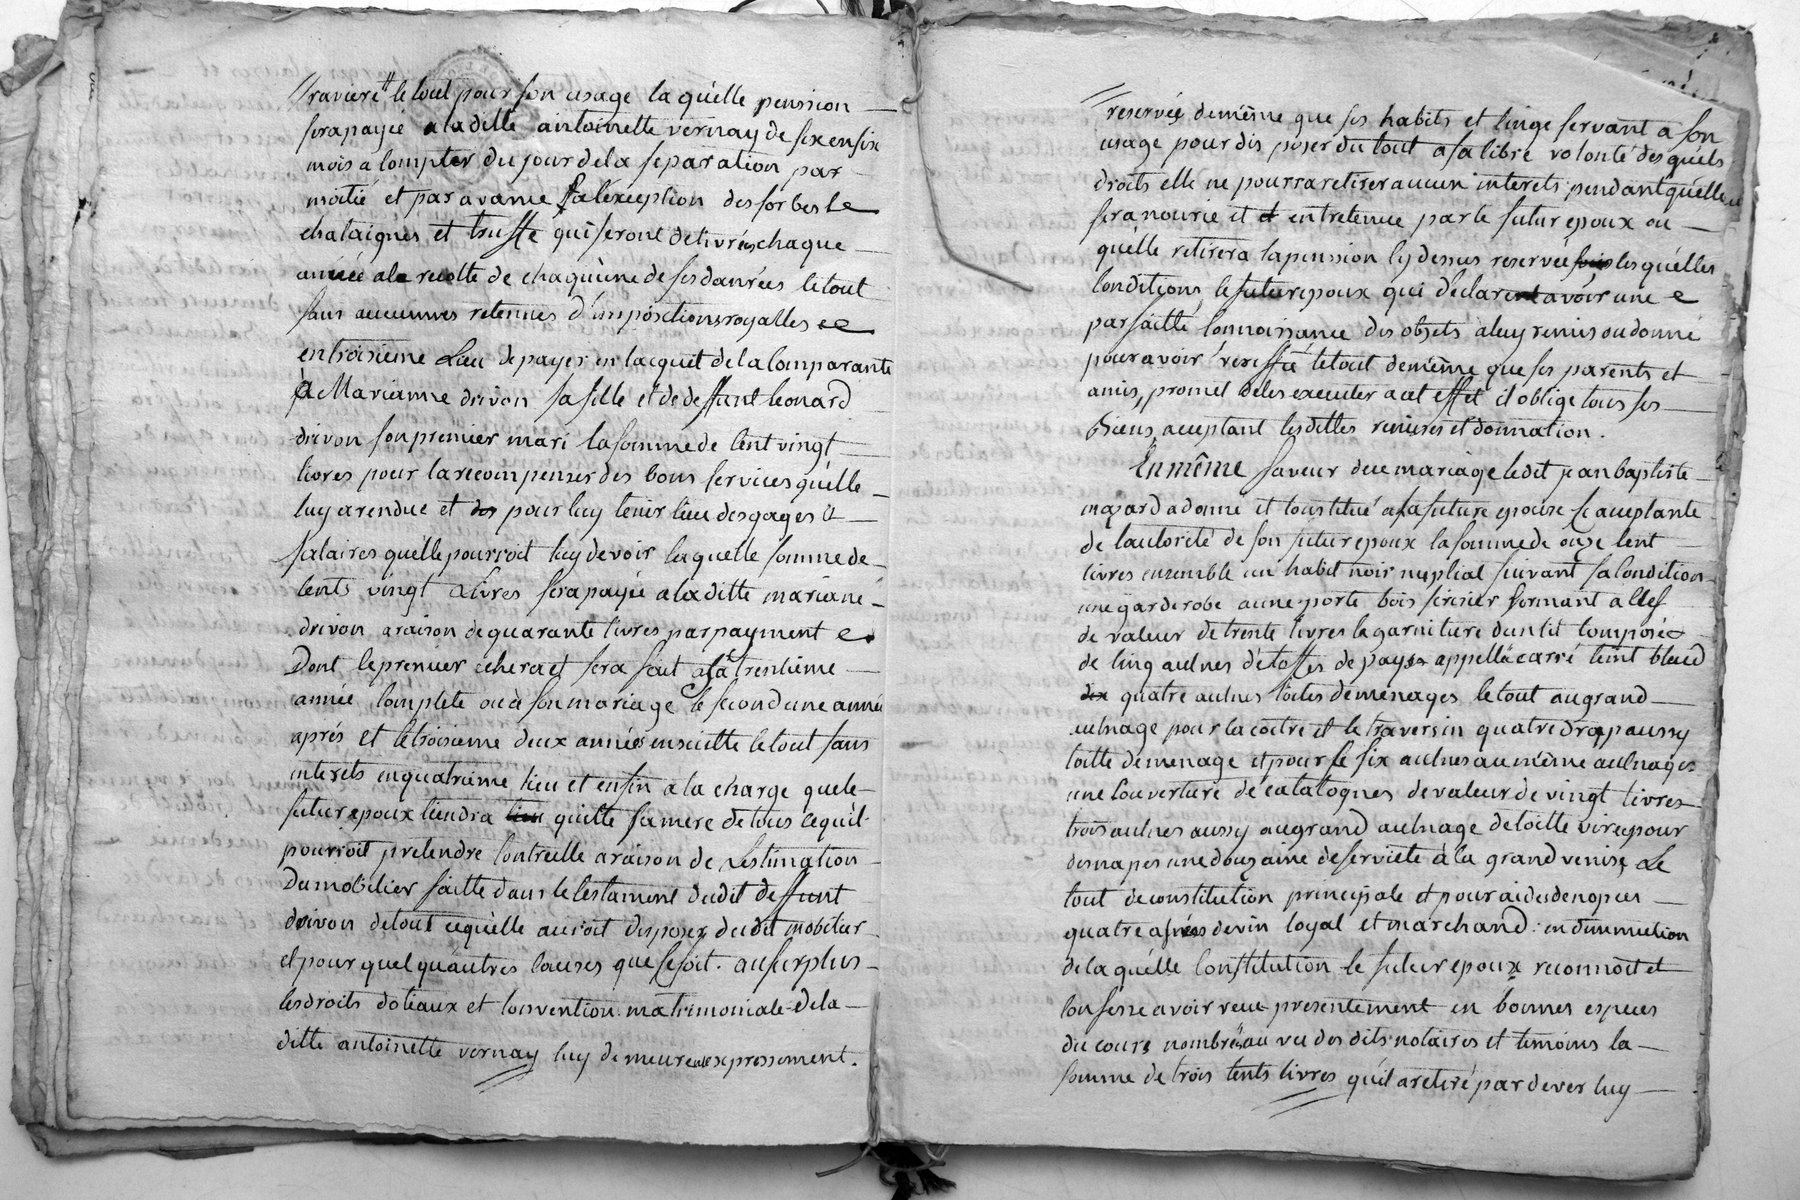 raviere le tout pour son usage laquélle pension
sera payée a laditte antoinette vernay de six en six
mois a compter du jour de la separation par
moitié et par avance a léxception des
chataignes et truffe qui seront delivrées chaque
année a la recolte de chaquùne de ses danrées le tout
sans aucunnes retenues d'impositions royalles
en troisieme Lieu de payer en lacquit de la comparante
à Marianne drivon sa fille et de deffunt leonard
drivon son premier mari la somme de cent vingt
livres pour la recompenser des bons services quélle
luy a rendue et pour luy tenir lieu des gages et
salaires quélle pourroit luy devoir laquelle somme de
cents vingt livres sera payée a la ditte mariane
drivon a raison de quarante livres par payment
Dont le premier echera et sera fait a la trentieme
année complete ou à son mariage le second une année
aprés et le troisieme deux années ensuitte le tout sans
interets en quatrieme lieu et enfin a la charge que le
futur epoux tiendra quitte sa mere de tous ce quil
pourroit pretendre contreelle a raison de Lestimation
Du mobilier faitte dans le testament dudit deffunt
drivon de tout ce quélle auroit disposer dudit mobilier
et pour quelquáutres causes que se soit. au surplus
les droits doteaux et convention matrimoniale de la
ditte antoinette vernay luy demeure expressement.
reservés demême que ses habits et linge servant a son
usage pour disposer du tout a sa libre volonté desquéls
droits elle ne pourra retirer aucun interets pendant quélle
sera nourie et entretenue par le futur epoux ou
quélle retirera la pension cy dessus reservée lesquélles
conditions le futur epoux qui déclare avoir une
parfaitte connoissance des objets à luy remis ou donné
pour avoir veriffié le tout demême que ses parents et
amis, promet de les executer a cet effet il oblige tous ses
Biens, aceptant lesdittes remises et donnation.
En même faveur de ce mariàge ledit jean baptiste
mazard a donné et constitué a sa future epouse
de l'autorité de son futur epoux la somme de onze cent
livres ensemble un habit noir nuptial suivant sa condition
une garderobe a une porte bois serisier fermant a clef
de valeur de trente livres la garniture dun lit composée
de cinq aulnes détoffes de pays appellé carré teint bleud
quatre aulnes toiles de ménages le tout au grand
aulnage pour la coitre et le traversin quatre drap aussy
toille de menage et pour le six aulnes au même aulnages
une couverture de catalognes de valeur de vingt livres
trois aulnes aussy au grand aulnage de toille pour
des napes une douzaine de serviete à la grand venise Le
tout de constitution principale et pour aides de nopces
quatre de vin loyal et marchand: en diminution
de la quélle constitution le futur epoux reconnoit et
confesse avoir reçu presentement en bonnes especes
du cours nombré au vu des dits notaires et témoins la
somme de trois cents livres quil a retiré par dever luy